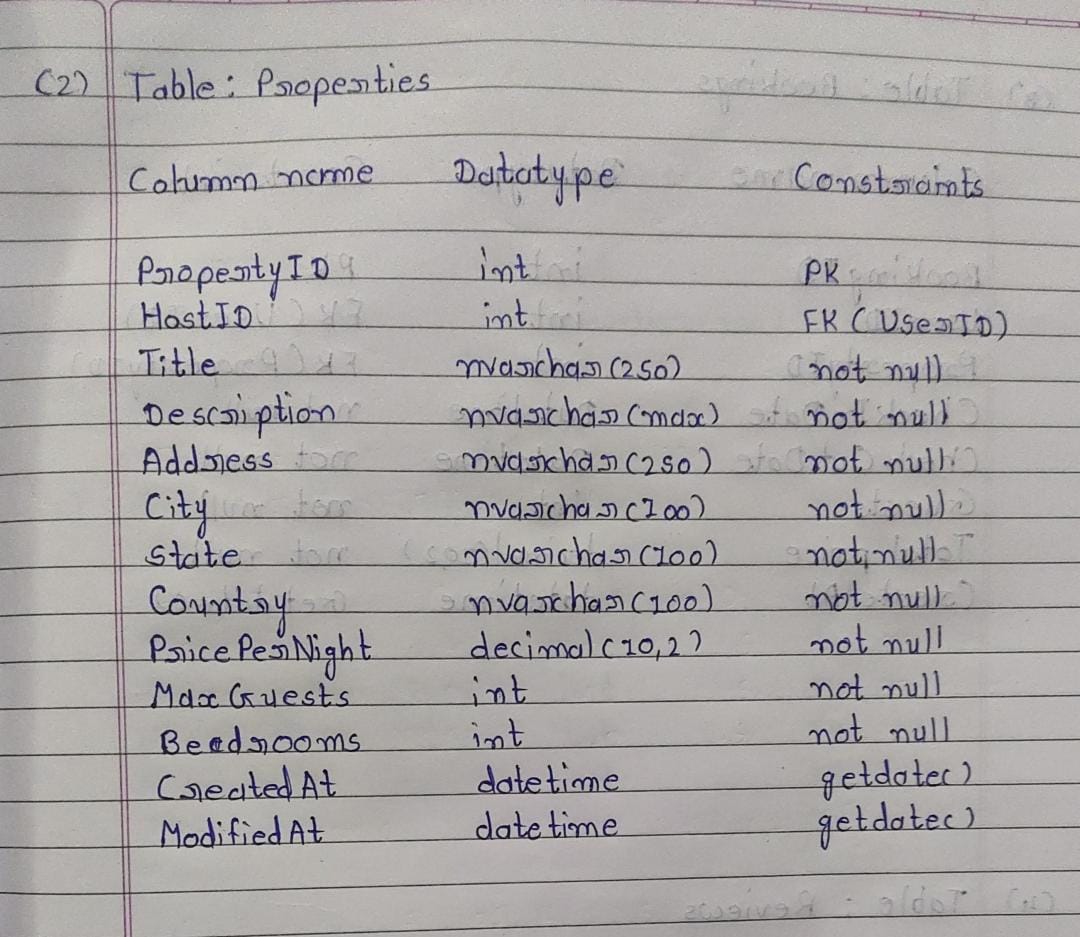 (2) Table: Properties
Column name Datatype Constraints
PropertyID int PK
HostID int FK (UserID)
Title nvarchar(250) not null
Description nvarchar(max) not null
Address nvarchar(250) not null
City nvarchar(100) not null
State nvarchar(100) not null
Country nvarchar(100) not null
PricePerNight decimal(10,2) not null
MaxGuests int not null
Beedrooms int not null
CreatedAt datetime getdate()
ModifiedAt datetime getdate()